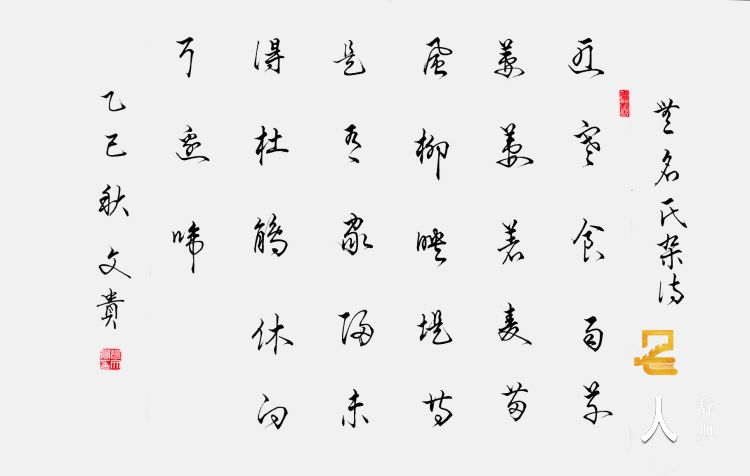 無名氏杂诗
近寒食雨草
萋萋著麦苗
風柳映堤等
是有家归未
得杜鹃休向
耳邊啼
乙巳秋 文貴
人
辞典